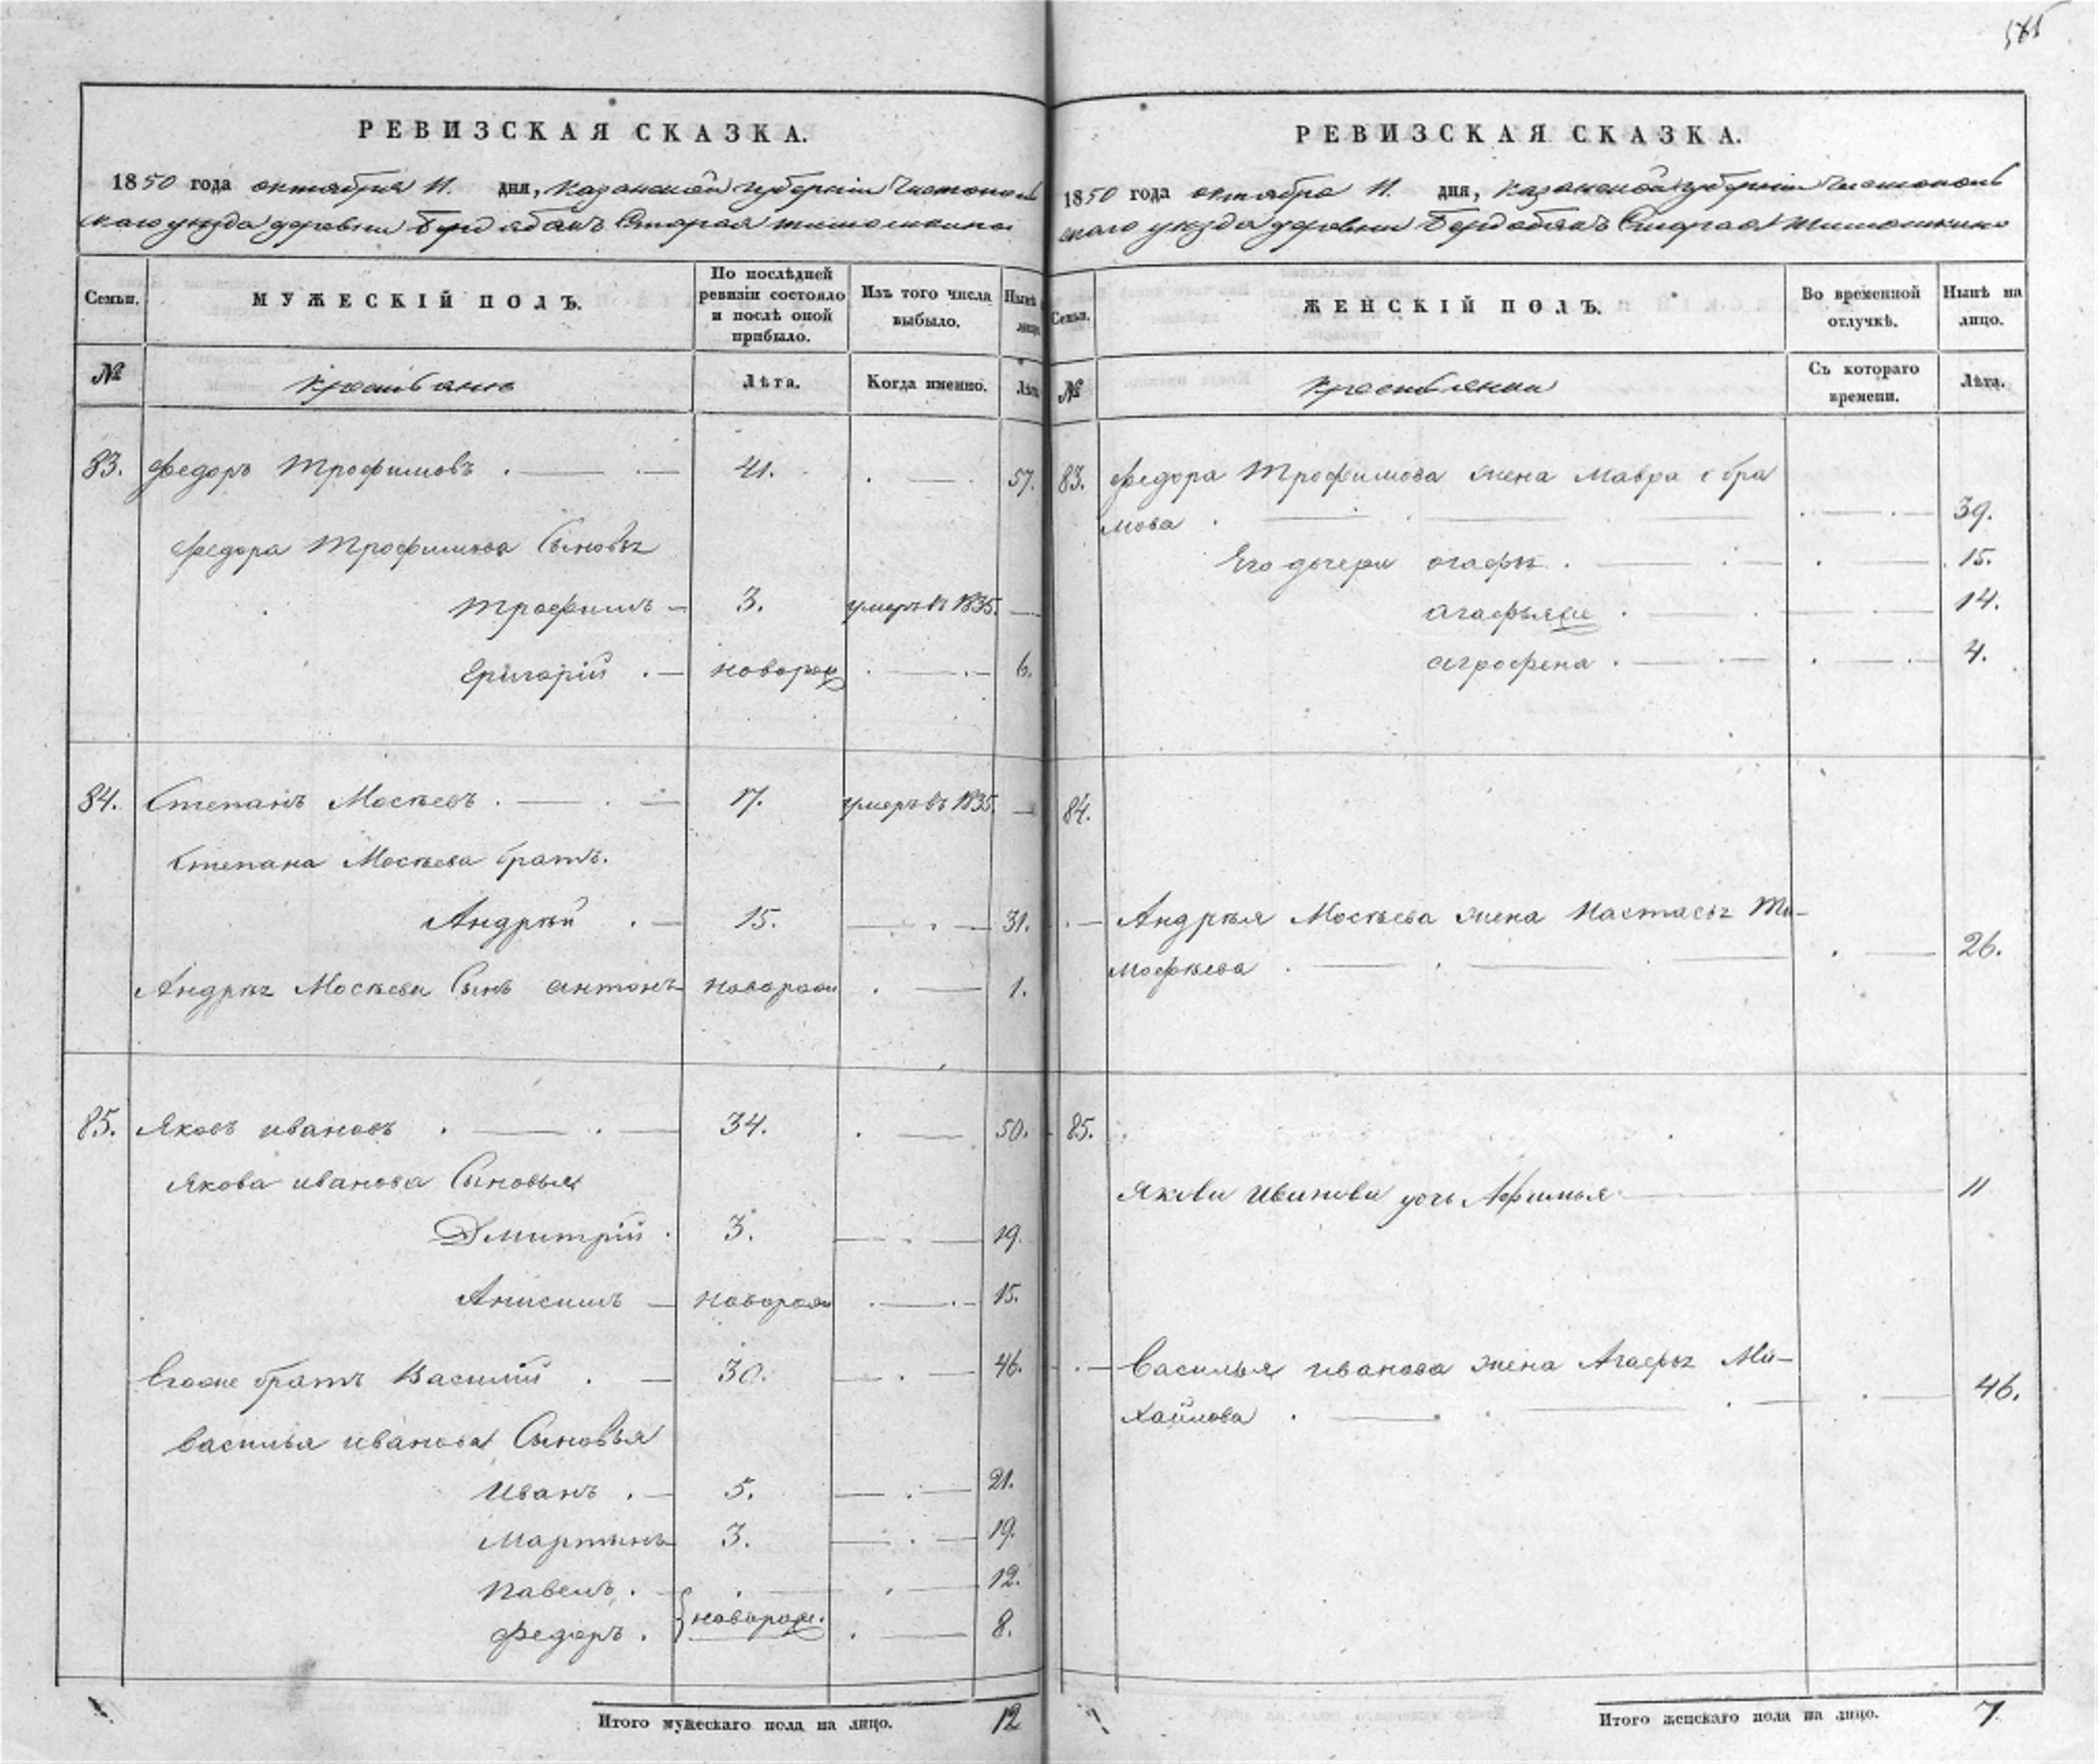 565
РЕВИЗСКАЯ СКАЗКА.
1850 года октября 11. дня, Казанской губернии Чистополь
скаго уезда деревни Бердебякъ Старая тимошкина
Семьи.
МУЖЕСКІЙ ПОЛЪ.
По послѣдней ревизіи состояло и послѣ оной прибыло.
Изъ того числа выбыло.
Нынѣ лицо.
№
крестьяне
Лѣта.
Когда именно.
Лѣта
83. Федоръ Трофимовъ 41. 57.
Федора Трофимова Сыновья
Трофимъ 3. умеръ въ 1835.
Григорій новорож 6.
84. Степанъ Мосѣевъ 17. умеръ въ 1835.
Степана Мосѣева братъ.
Андрѣй 15. 31.
Андрѣя Мосѣева Сынъ антонъ новорож 1.
85. Яковъ ивановъ 34. 50.
Якова иванова Сыновья
Дмитрій 3. 19.
Анисимъ новорож 15.
Егоже братъ Василій 30. 46.
Василья иванова Сыновья
Иванъ 5. 21.
Мартынъ 3. 19.
Павелъ. 12.
Федоръ. новорож. 8.
Итого мужескаго пола на лицо. 12
РЕВИЗСКАЯ СКАЗКА.
1850 года октября 11. дня, Казанской губернии Чистополь
скаго уезда деревни Бердебякъ Старая Тимошкина
Семьи.
ЖЕНСКІЙ ПОЛЪ.
Во временной отлучкѣ.
Нынѣ на лицо.
№
крестьянки
Съ котораго времени.
Лѣта.
83. Федора Трофимова жена Мавра
мова 39.
Его дочери 15.
агафья 14.
агрофена 4.
84.
Андрѣя Мосѣева жена Настасья Ти-
мофѣева 26.
85.
Якова Иванова дочь Афимья 11
Василья иванова жена Агафья Ми-
хайлова 46.
Итого женскаго пола на лицо. 7